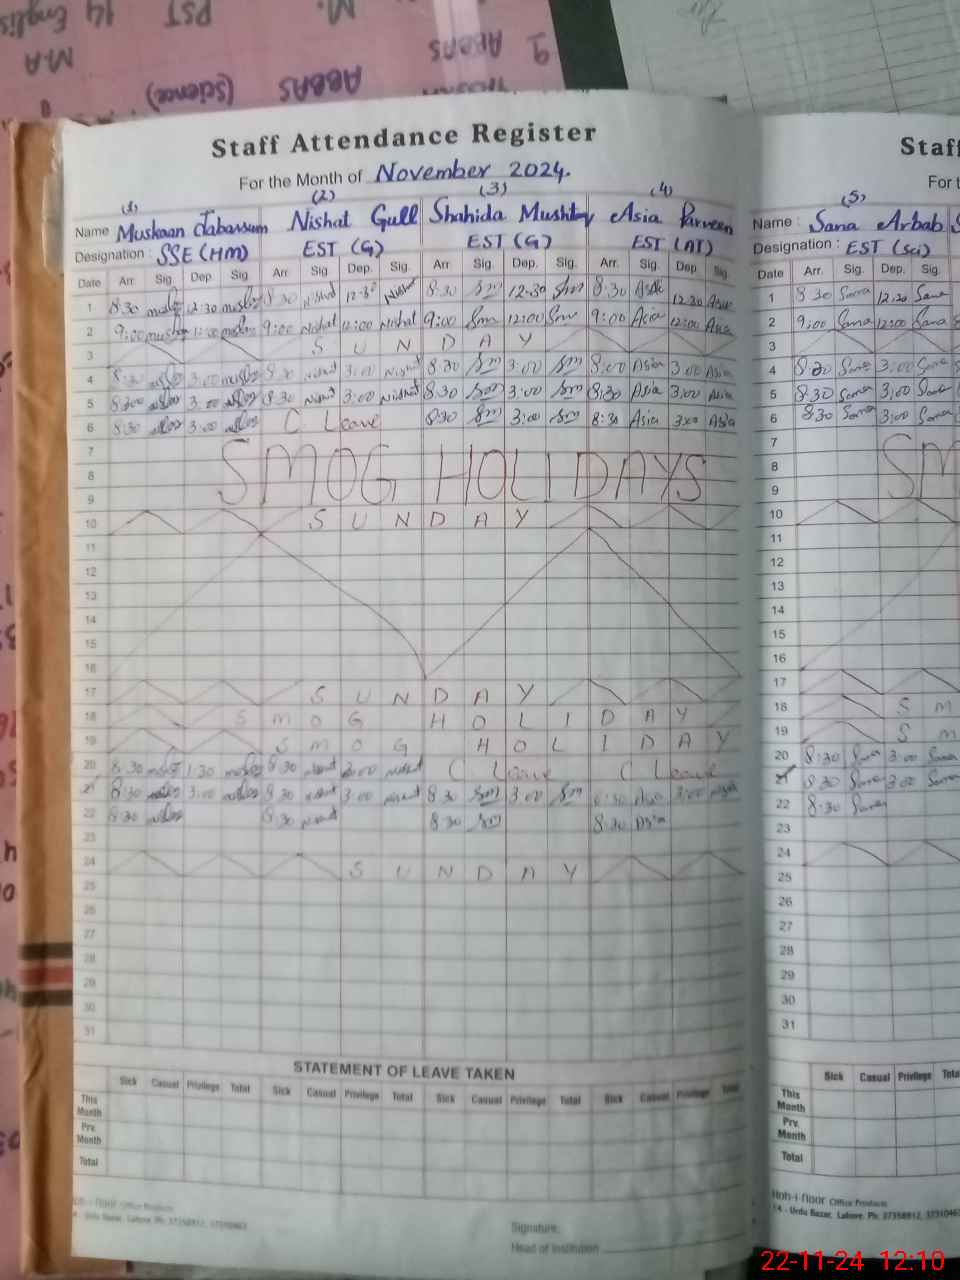 PST 14 English
MA
ABBAS
9 ABBAS (Science)
Staff Attendance Register
For the Month of November 2024.
(1) (2) (3) (4)
Name Muskaan Tabassum Nishat Gull Shahida Mushtaq Asia Parveen
Designation : SSE (HM) EST (G) EST (G) EST (AT)
Date Arr. Sig. Dep. Sig. Arr. Sig. Dep. Sig. Arr. Sig. Dep. Sig. Arr. Sig. Dep. Sig.
1 8:30 12:30 8:30 Nishat 12:30 Nishat 8:30 Sm 12:30 Sm 8:30 Asia 12:30 Asia
2 9:00 12:00 9:00 Nishat 12:00 Nishat 9:00 Sm 12:00 Sm 9:00 Asia 12:00 Asia
3 SUNDAY
4 8:30 3:00 8:30 Nishat 3:00 Nishat 8:30 Sm 3:00 Sm 8:00 Asia 3:00 Asia
5 3:00 8:30 Nishat 3:00 Nishat 8:30 Sm 3:00 Sm 8:30 Asia 3:00 Asia
6 8:30 3:00 C Leave 8:30 Sm 3:00 Sm 8:30 Asia 3:00 Asia
7
8 SMOG HOLIDAYS
9
10 SUNDAY
11
12
13
14
15
16
17 SUNDAY
18 SMOG HOLIDAY
19 SMOG HOLIDAY
20 8:30 1:30 8:30 Nishat 3:00 Nishat C Leave C Leave
21 8:30 3:00 8:30 Nishat 3:00 Nishat 8:30 Sm 3:00 Sm 8:30 Asia 3:00
22 8:30 8:30 Nishat 8:30 Sm 8:30 Asia
23
24 SUNDAY
25
26
27
28
29
30
31
STATEMENT OF LEAVE TAKEN
Sick Casual Privilege Total Sick Casual Privilege Total Sick Casual Privilege Total Sick Casual Privilege Total
This Month
Prv. Month
Total
Office Products
Urdu Bazar, Lahore. Ph: 37358912, 37310463
Signature:
Head of Institution
Staff
For t
(5)
Name : Sana Arbab
Designation : EST (Sci)
Date Arr. Sig. Dep. Sig.
1 8:30 Sana 12:30 Sana
2 9:00 Sana 12:00 Sana
3
4 8:30 Sana 3:00 Sana
5 8:30 Sana 3:00 Sana
6 8:30 Sana 3:00 Sana
7
8 SM
9
10
11
12
13
14
15
16
17
18 S M
19 S M
20 8:30 Sana 3:00 Sana
21 8:30 Sana 3:00 Sana
22 8:30 Sana
23
24
25
26
27
28
29
30
31
Sick Casual Privilege Tota
This Month
Prv. Month
Total
Hob-i-floor Office Products
14 - Urdu Bazar, Lahore. Ph: 37358912, 3731046
22-11-24 12:10